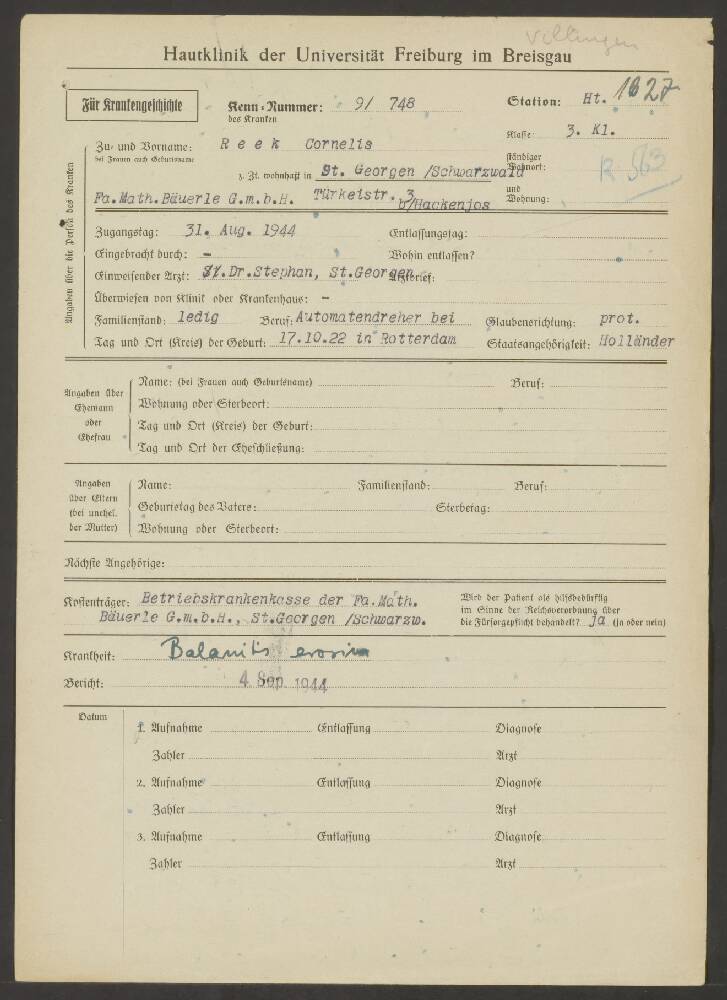 Villingen
Hautklinik der Universität Freiburg im Breisgau
Für Krankengeschichte
Kenn-Nummer: 9/ 748
des Kranken
Station: Ht. 1627
Klasse: 3. Kl.
Angaben über die Person des Kranken
Zu- und Vorname: Reek Cornelis
bei Frauen auch Geburtsname
ständiger Wohnort: R 563
z. Zt. wohnhaft in St. Georgen /Schwarzwald
und Wohnung:
Fa.Math.Bäuerle G.m.b.H. Türkeistr. 3
b/Hackenjos
Zugangstag: 31. Aug. 1944 Entlassungstag:
Eingebracht durch: - Wohin entlassen?
Einweisender Arzt: Dr.Stephan, St.Georgen
Überwiesen von Klinik oder Krankenhaus: -
Familienstand: ledig Beruf: Automatendreher bei Glaubensrichtung: prot.
Tag und Ort (Kreis) der Geburt: 17.10.22 in Rotterdam Staatsangehörigkeit: Holländer
Angaben über Ehemann oder Ehefrau
Name: (bei Frauen auch Geburtsname) Beruf:
Wohnung oder Sterbeort:
Tag und Ort (Kreis) der Geburt:
Tag und Ort der Eheschließung:
Angaben über Eltern (bei unehel. der Mutter)
Name: Familienstand: Beruf:
Geburtstag des Vaters: Sterbetag:
Wohnung oder Sterbeort:
Nächste Angehörige:
Kostenträger: Betriebskrankenkasse der Fa.Math.
Bäuerle G.m.b.H., St.Georgen /Schwarzw.
Wird der Patient als hilfsbedürftig
im Sinne der Reichsverordnung über
die Fürsorgepflicht behandelt? ja (ja oder nein)
Krankheit: Balanitis erosiva
Bericht: 4. Sep. 1944
Datum
1. Aufnahme Entlassung Diagnose
Zahler Arzt
2. Aufnahme Entlassung Diagnose
Zahler Arzt
3. Aufnahme Entlassung Diagnose
Zahler Arzt